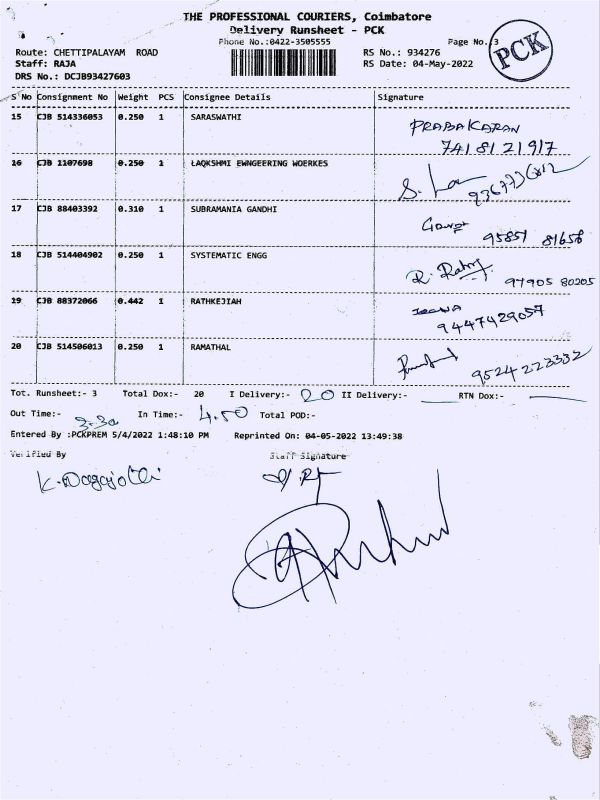 THE PROFESSIONAL COURIERS, Coimbatore
Delivery Runsheet - PCK
Phone No.:0422-3505555
Page No.:3
PCK
Route: CHETTIPALAYAM ROAD
RS No.: 934276
Staff: RAJA
RS Date: 04-May-2022
DRS No.: DCJB93427603
S No Consignment No Weight PCS Consignee Details Signature
15 CJB 514336053 0.250 1 SARASWATHI
PRABAKARAN
7418121917
16 CJB 1107698 0.250 1 LAQKSHMI EWNGEERING WOERKES
17 CJB 88403392 0.310 1 SUBRAMANIA GANDHI
95857 81656
18 CJB 514404902 0.250 1 SYSTEMATIC ENGG
97905 80205
19 CJB 88372066 0.442 1 RATHKEJIAH
9447429057
20 CJB 514506013 0.250 1 RAMATHAL
9524223332
Tot. Runsheet:- 3 Total Dox:- 20 I Delivery:- 20 II Delivery:- RTN Dox:-
Out Time:- 3.30 In Time:- 4.50 Total POD:-
Entered By :PCKPREM 5/4/2022 1:48:10 PM Reprinted On: 04-05-2022 13:49:38
Verified By Staff Signature